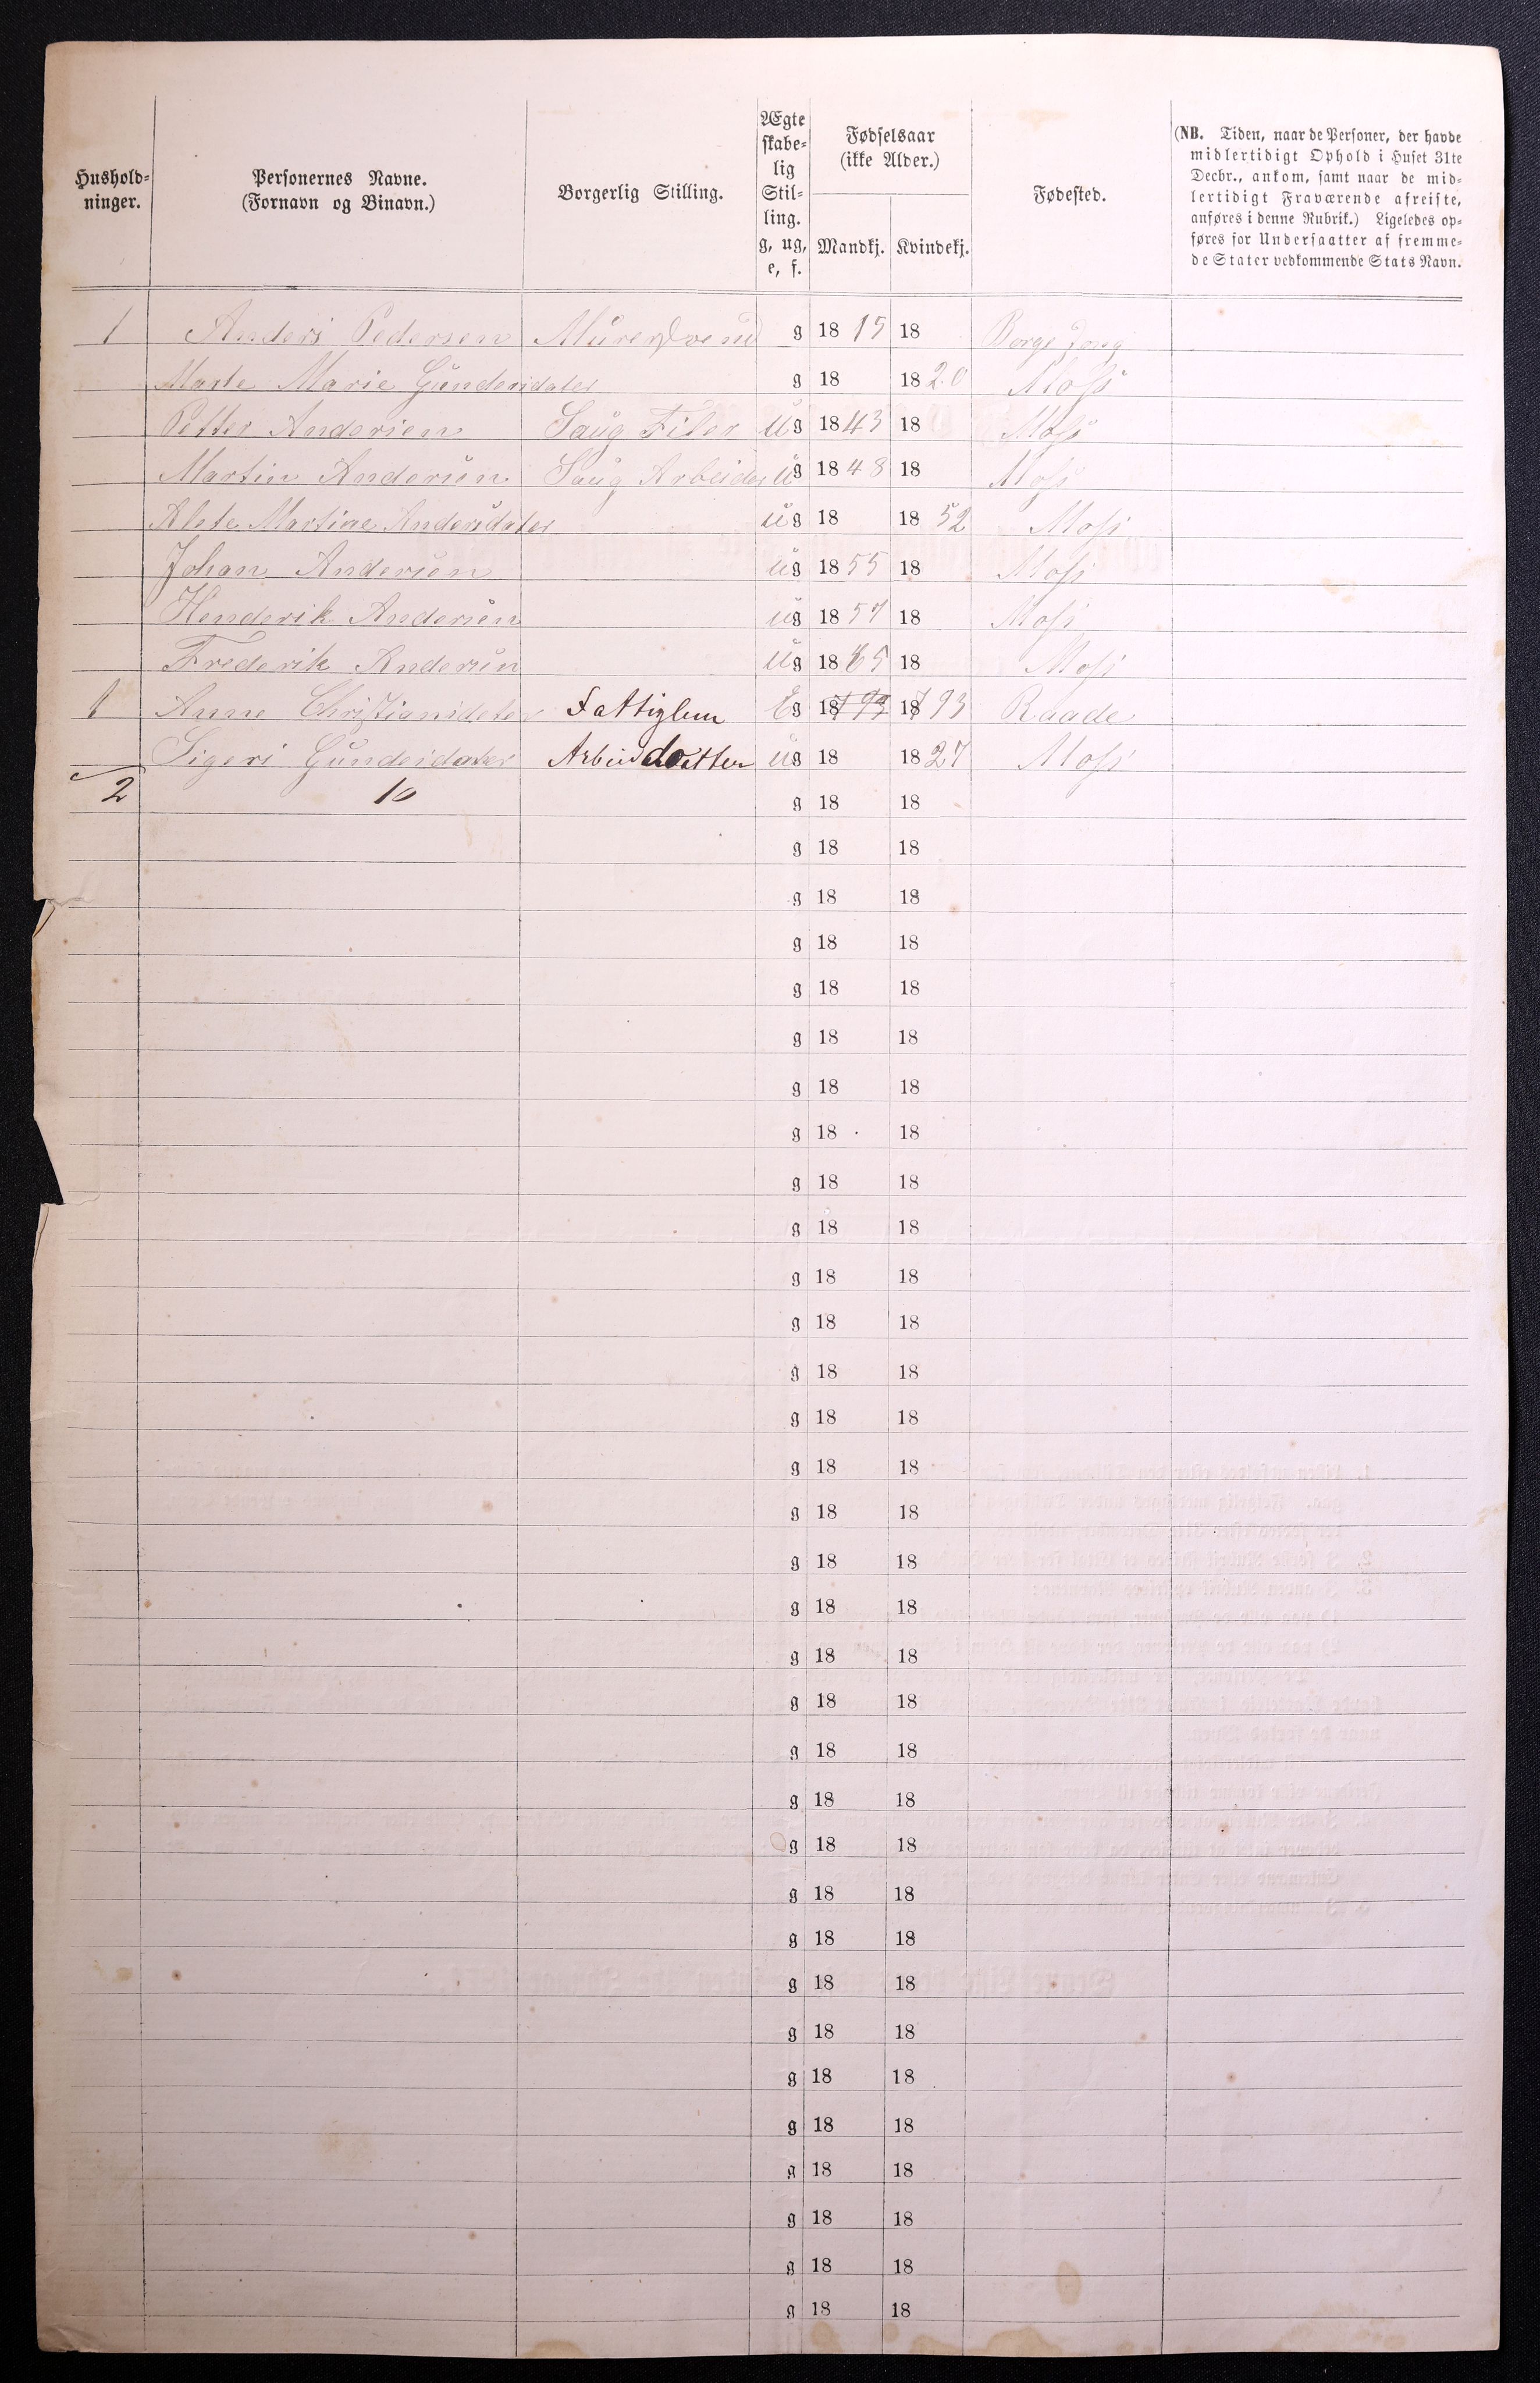 Hushold-
ninger.
Personernes Navne.
(Fornavn og Binavn.)
Borgerlig Stilling.
Ægte
skabe-
lig
Stil-
ling.
g, ug,
e, f.
Fødselsaar
(ikke Alder.)
Mandkj. Kvindekj.
Fødested.
(NB. Tiden, naar de Personer, der havde
midlertidigt Ophold i Huset 31te
Decbr., ankom, samt naar de mid-
lertidigt Fraværende afreiste,
anføres i denne Rubrik.) Ligeledes op-
føres for Undersaatter af fremme-
de Stater vedkommende Stats Navn.
1 Anders Pedersen Murersvend g 18 15 18 Borge
Marte Marie Gundersdater g 18 18 20 Moss
Petter Andersen Saug Filer ug 18 43 18 Moss
Martin Andersen Saug Arbeider ug 18 48 18 Moss
Alete Martine Andersdater ug 18 18 52 Moss
Johan Andersen ug 18 55 18 Moss
Henderik Andersen ug 18 57 18 Moss
Frederik Andersen ug 18 65 18 Moss
1 Anne Christiansdater Fattiglem E g 1793 1793 Raade
Sigeri Gundersdater ug 18 18 27 Moss
2 10 g 18 18
g 18 18
g 18 18
g 18 18
g 18 18
g 18 18
g 18 18
g 18 18
g 18 18
g 18 18
g 18 18
g 18 18
g 18 18
g 18 18
g 18 18
g 18 18
g 18 18
g 18 18
g 18 18
g 18 18
g 18 18
g 18 18
g 18 18
g 18 18
g 18 18
g 18 18
g 18 18
g 18 18
g 18 18
g 18 18
g 18 18
g 18 18
g 18 18